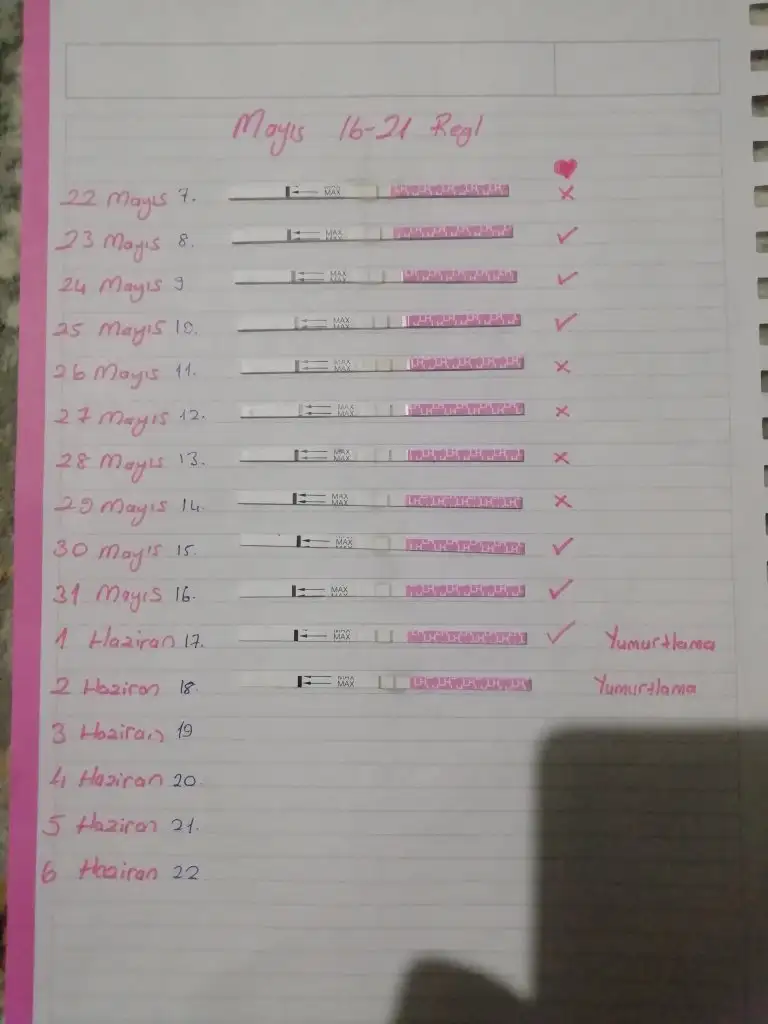 Mayıs 16-21 Regl
22 Mayıs 7. MAX
23 Mayıs 8. MAX
24 Mayıs 9 MAX
25 Mayıs 10. MAX
26 Mayıs 11. MAX
27 Mayıs 12. MAX
28 Mayıs 13. MAX
29 Mayıs 14. MAX
30 Mayıs 15. MAX
31 Mayıs 16. MAX
1 Haziran 17. MAX Yumurtlama
2 Haziran 18. MAX Yumurtlama
3 Haziran 19
4 Haziran 20.
5 Haziran 21.
6 Haziran 22